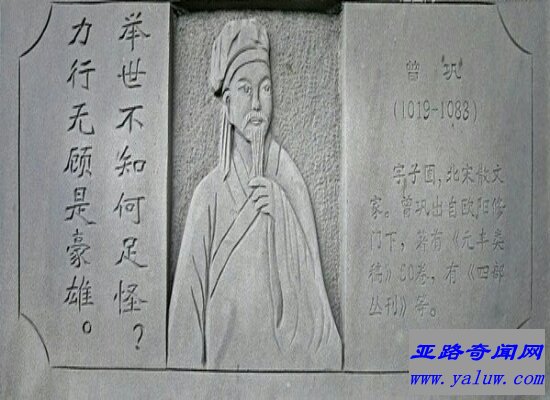 举世不知何足怪?
力行无顾是豪雄。
曾 巩
(1019-1083)
字子固,北宋散文
家。曾巩出自欧阳修
门下,著有《元丰类
稿》50卷,有《四部
丛刊》等。
亚路奇闻网
www.yaluw.com